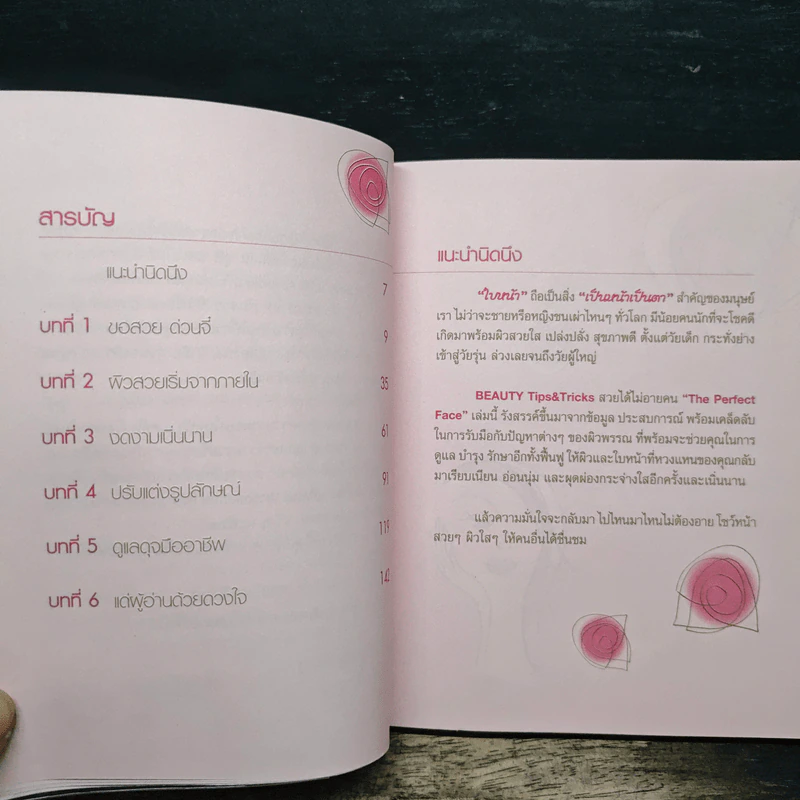 สารบัญ
แนะนำนิดนึง 7
บทที่ 1 ขอสวย ด่วนจี๋ 9
บทที่ 2 ผิวสวยเริ่มจากภายใน 35
บทที่ 3 งดงามเนิ่นนาน 61
บทที่ 4 ปรับแต่งรูปลักษณ์ 91
บทที่ 5 ดูแลดุจมืออาชีพ 119
บทที่ 6 แด่ผู้อ่านด้วยดวงใจ 142
แนะนำนิดนึง
"ใบหน้า" ถือเป็นสิ่ง "เป็นหน้าเป็นตา" สำคัญของมนุษย์
เรา ไม่ว่าจะชายหรือหญิงชนเผ่าไหนๆ ทั่วโลก มีน้อยคนนักที่จะโชคดี
เกิดมาพร้อมผิวสวยใส เปล่งปลั่ง สุขภาพดี ตั้งแต่วัยเด็ก กระทั่งย่าง
เข้าสู่วัยรุ่น ล่วงเลยจนถึงวัยผู้ใหญ่
BEAUTY Tips&Tricks สวยได้ไม่อายคน "The Perfect
Face" เล่มนี้ รังสรรค์ขึ้นมาจากข้อมูล ประสบการณ์ พร้อมเคล็ดลับ
ในการรับมือกับปัญหาต่างๆ ของผิวพรรณ ที่พร้อมจะช่วยคุณในการ
ดูแล บำรุง รักษาอีกทั้งฟื้นฟู ให้ผิวและใบหน้าที่หวงแทนของคุณกลับ
มาเรียบเนียน อ่อนนุ่ม และผุดผ่องกระจ่างใสอีกครั้งและเนิ่นนาน
แล้วความมั่นใจจะกลับมา ไปไหนมาไหนไม่ต้องอาย โชว์หน้า
สวยๆ ผิวใสๆ ให้คนอื่นได้ชื่นชม